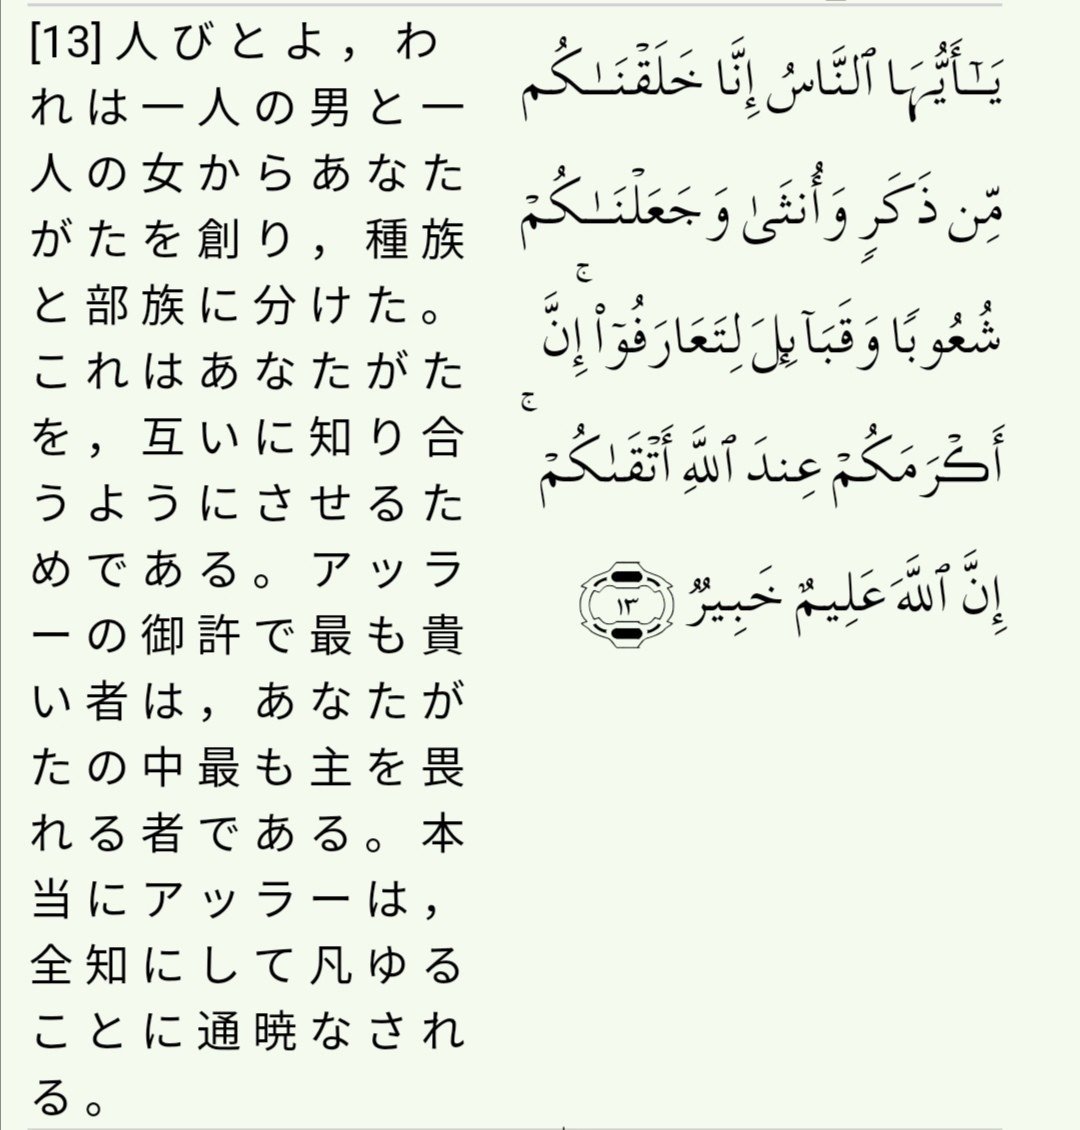 [13] 人びとよ，わ
れは一人の男と一
人の女からあなた
がたを創り，種族
と部族に分けた。
これはあなたがた
を，互いに知り合
うようにさせるた
めである。アッラ
ーの御許で最も貴
い者は，あなたが
たの中最も主を畏
れる者である。本
当にアッラーは，
全知にして凡ゆる
ことに通暁なされ
る。
يَـٰٓأَيُّهَا ٱلنَّاسُ إِنَّا خَلَقْنَـٰكُم
مِّن ذَكَرٍ وَأُنثَىٰ وَجَعَلْنَـٰكُمْ
شُعُوبًا وَقَبَآئِلَ لِتَعَارَفُوٓا۟ ۚ إِنَّ
أَكْرَمَكُمْ عِندَ ٱللَّهِ أَتْقَىٰكُمْ ۚ
إِنَّ ٱللَّهَ عَلِيمٌ خَبِيرٌ ١٣